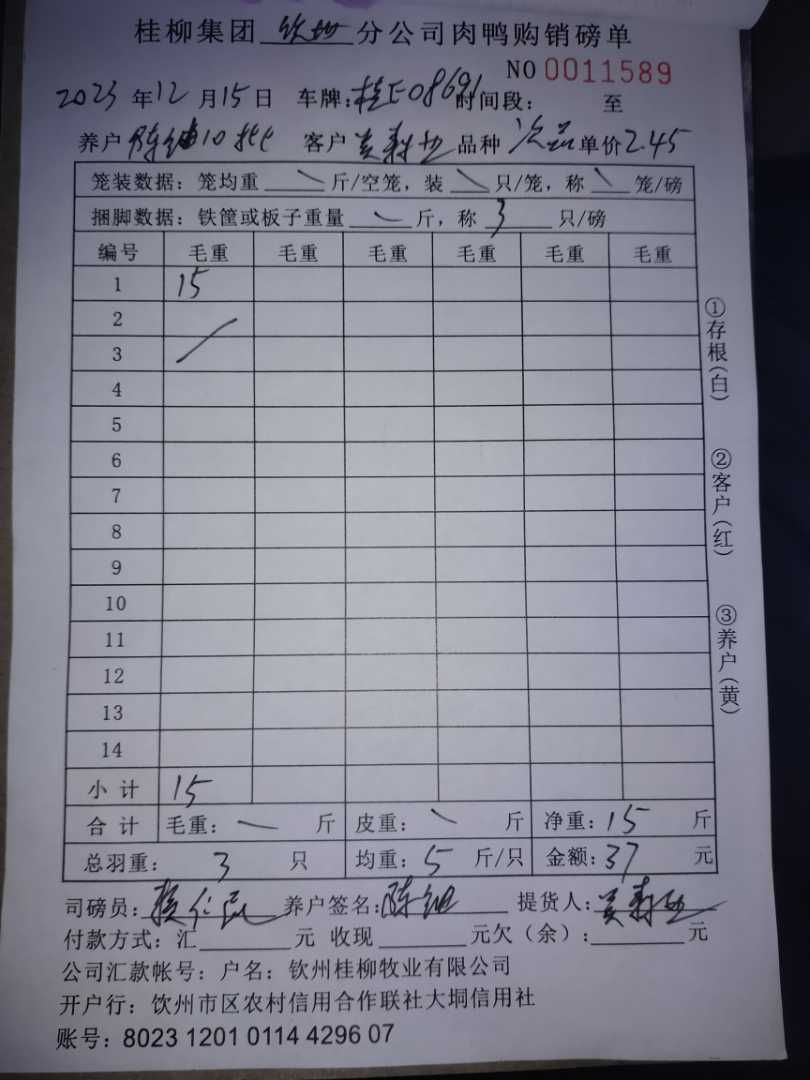 桂柳集团 钦州 分公司肉鸭购销磅单
NO 0011589
2023 年 12 月 15 日 车牌: 桂E08691 时间段: 至
养户 陈 10批 客户 品种 次品 单价 2.45
笼装数据: 笼均重 斤/空笼, 装 只/笼, 称 笼/磅
捆脚数据: 铁筐或板子重量 斤, 称 3 只/磅
编号 毛重 毛重 毛重 毛重 毛重 毛重
1 15
2
3
4
5
6
7
8
9
10
11
12
13
14
小计 15
合计 毛重: 斤 皮重: 斤 净重: 15 斤
总羽重: 3 只 均重: 5 斤/只 金额: 37 元
司磅员: 养户签名: 陈 提货人:
付款方式: 汇 元 收现 元欠(余): 元
公司汇款帐号: 户名: 钦州桂柳牧业有限公司
开户行: 饮州市区农村信用合作联社大垌信用社
账号: 8023 1201 0114 4296 07
①存根(白)
②客户(红)
③养户(黄)